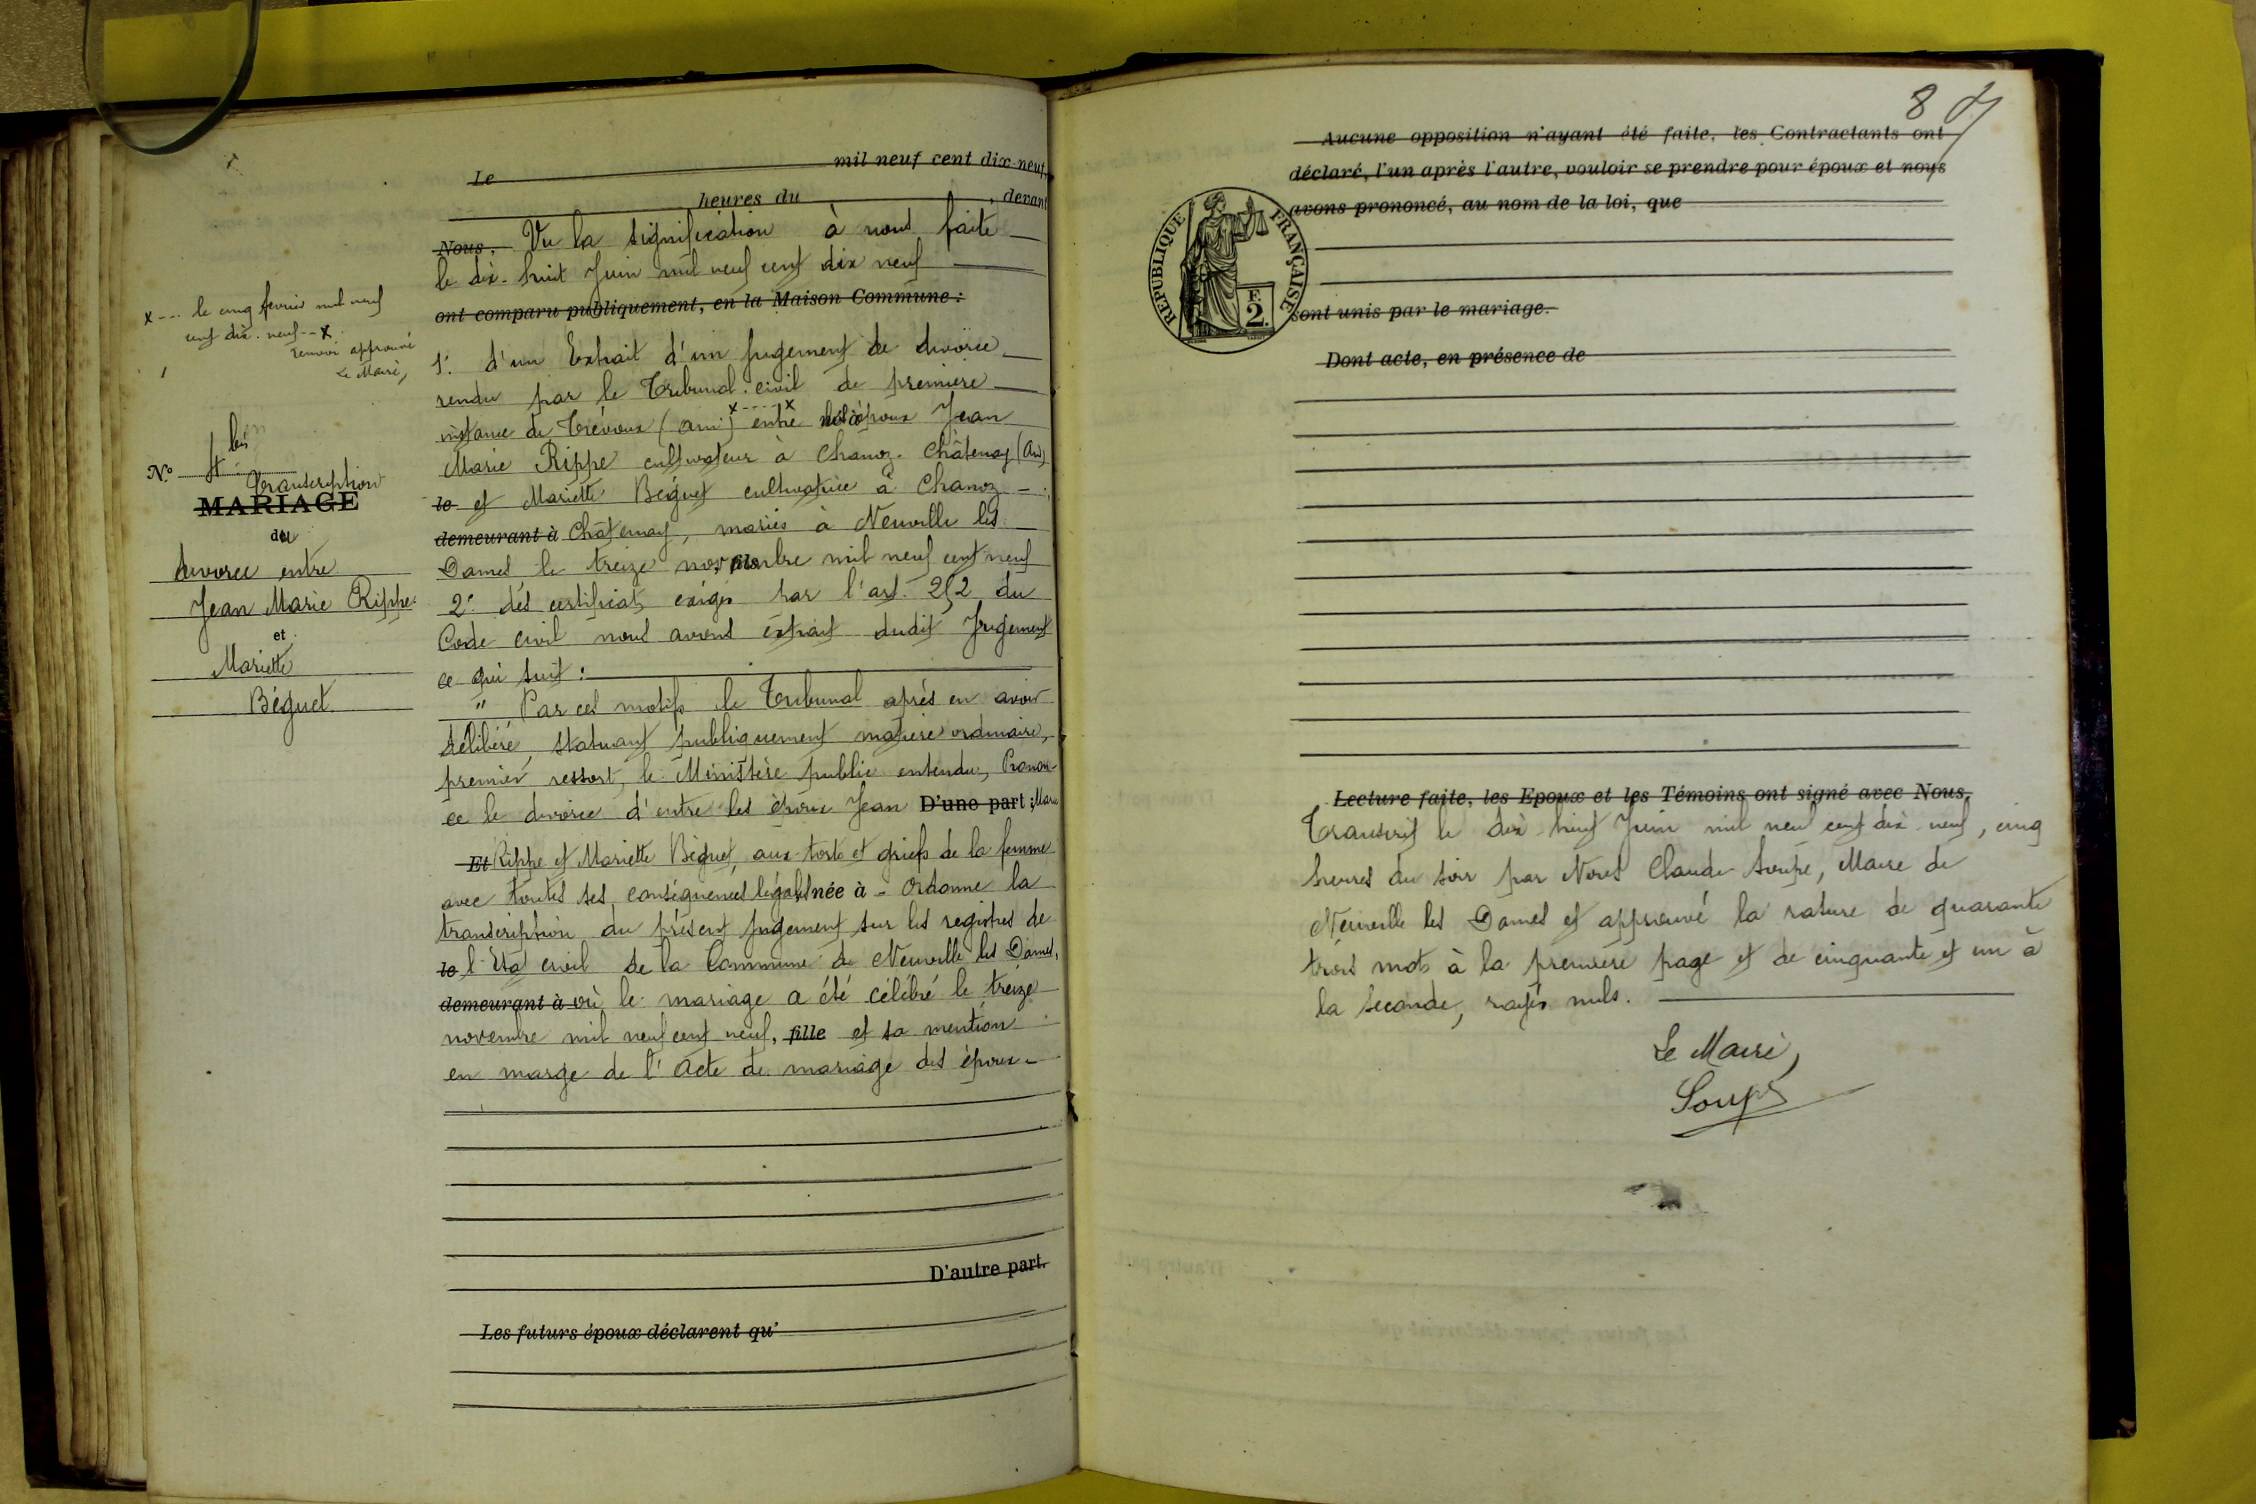 x--- le cinq février mil neuf
cent dix-neuf--x
renvoi approuvé
Le Maire,
N° 4 bis
Transcription
MARIAGE
du
divorce entre
Jean Marie Rippe
et
Mariette
Béguet
Le mil neuf cent dix-neuf,
heures du , devant
Nous, Vu la signification à nous faite
le dix-huit Juin mil neuf cent dix neuf
ont comparu publiquement, en la Maison Commune :
1° d'un Extrait d'un jugement de divorce
rendu par le Tribunal civil de première
instance de Trévoux (Ain) x----x entre les époux Jean
Marie Rippe cultivateur à Chanoz-Châtenay (Ain)
le et Mariette Béguet cultivatrice à Chanoz-
demeurant à Châtenay, mariés à Neuville les
Dames le treize novembre mil neuf cent neuf
2° des certificats exigés par l'art. 252 du
Code civil nous avons extrait dudit Jugement
ce qui suit :
" Par ces motifs le Tribunal après en avoir
délibéré, statuant publiquement matière ordinaire,
premier ressort, le Ministère public entendu, Pronon-
ce le divorce d'entre les époux Jean D'une part ; Marie
Et Rippe et Mariette Béguet, aux torts et griefs de la femme
avec toutes ses conséquences légales née à - Ordonne la
transcription du présent jugement sur les registres de
le l'Etat civil de la Commune de Neuville les Dames,
demeurant à où le mariage a été célébré le treize
novembre mil neuf cent neuf, fille et sa mention
en marge de l'acte de mariage des époux-
D'autre part.
Les futurs époux déclarent qu'
8
Aucune opposition n'ayant été faite, les Contractants ont
déclaré, l'un après l'autre, vouloir se prendre pour époux et nous
avons prononcé, au nom de la loi, que
REPUBLIQUE FRANÇAISE
F. 2.
sont unis par le mariage.
Dont acte, en présence de
Lecture faite, les Epoux et les Témoins ont signé avec Nous,
Transcrit le dix-huit Juin mil neuf cent dix neuf, cinq
heures du soir par Nous Claude Soupe, Maire de
Neuville les Dames et approuvé la rature de quarante
trois mots à la première page et de cinquante et un à
la seconde, rayés nuls.
Le Maire,
Soupe